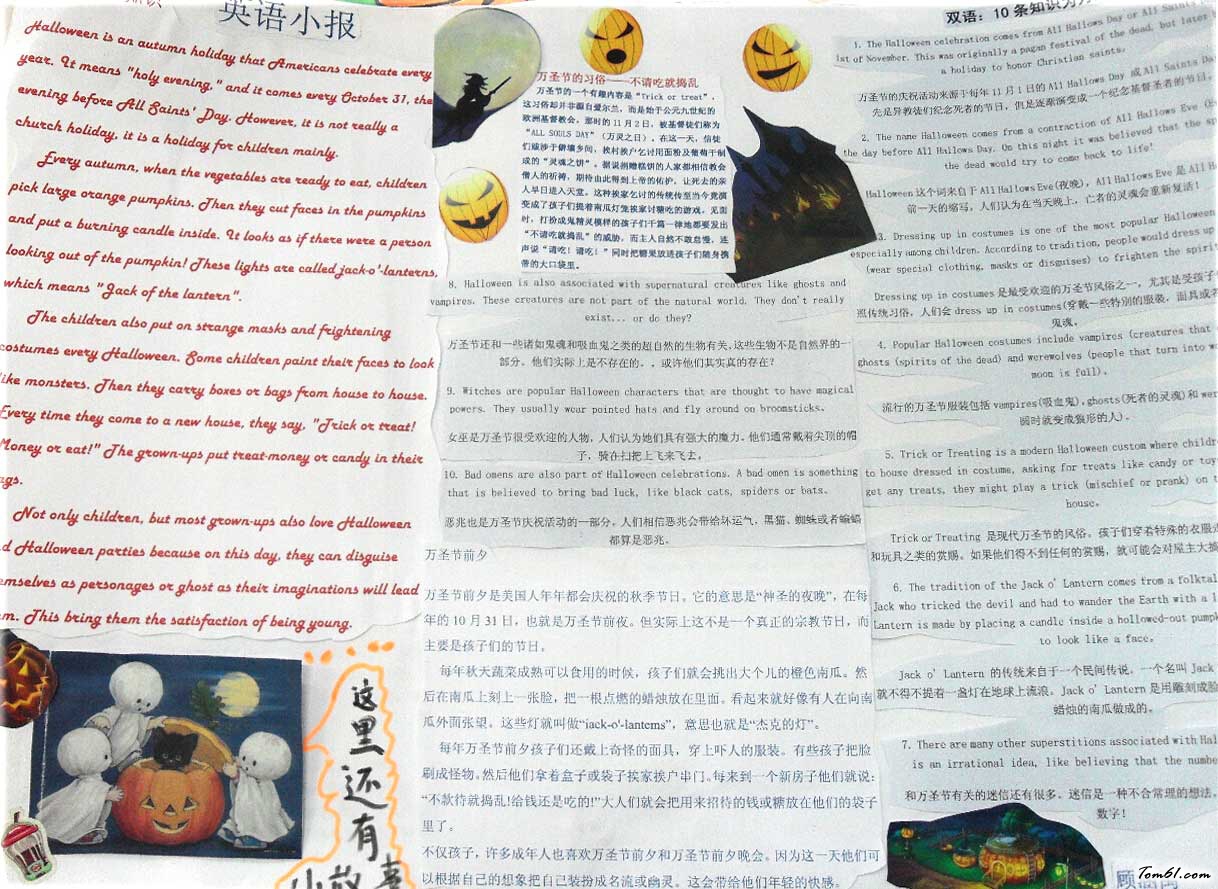 英语小报
Halloween is an autumn holiday that Americans celebrate every
year. It means "holy evening," and it comes every October 31, the
evening before All Saints' Day. However, it is not really a
church holiday, it is a holiday for children mainly.
Every autumn, when the vegetables are ready to eat, children
pick large orange pumpkins. Then they cut faces in the pumpkins
and put a burning candle inside. It looks as if there were a person
looking out of the pumpkin! These lights are called jack-o'-lanterns,
which means "Jack of the lantern".
The children also put on strange masks and frightening
costumes every Halloween. Some children paint their faces to look
like monsters. Then they carry boxes or bags from house to house.
Every time they come to a new house, they say, "Trick or treat!
Money or eat!" The grown-ups put treat-money or candy in their
ags.
Not only children, but most grown-ups also love Halloween
d Halloween parties because on this day, they can disguise
emselves as personages or ghost as their imaginations will lead
m. This bring them the satisfaction of being young.
这里还有
万圣节的习俗——不请吃就捣乱
万圣节的一个有趣内容是“Trick or treat”,
这习俗却并非源自爱尔兰,而是始于公元九世纪的
欧洲基督教会。那时的11月2日,被基督徒们称为
“ALL SOULS DAY”(万灵之日)。在这一天,信徒
们跋涉于僻壤乡间,挨村挨户乞讨用面粉及葡萄干制
成的“灵魂之饼”。据说捐赠糕饼的人家都相信教会
僧人的祈祷,期待由此得到上帝的佑护,让死去的亲
人早日进入天堂。这种挨家乞讨的传统传至当今竟演
变成了孩子们提着南瓜灯笼挨家讨糖吃的游戏。见面
时,打扮成鬼精灵模样的孩子们千篇一律地都要发出
“不请吃就捣乱”的威胁,而主人自然不敢怠慢,连
声说“请吃!请吃!”同时把糖果放进孩子们随身携
带的大口袋里。
8. Halloween is also associated with supernatural creatures like ghosts and
vampires. These creatures are not part of the natural world. They don't really
exist... or do they?
万圣节还和一些诸如鬼魂和吸血鬼之类的超自然的生物有关,这些生物不是自然界的一
部分。他们实际上是不存在的。,或许他们其实真的存在?
9. Witches are popular Halloween characters that are thought to have magical
powers. They usually wear pointed hats and fly around on broomsticks.
女巫是万圣节很受欢迎的人物,人们认为她们具有强大的魔力。他们通常戴着尖顶的帽
子,骑在扫把上飞来飞去。
10. Bad omens are also part of Halloween celebrations. A bad omen is something
that is believed to bring bad luck, like black cats, spiders or bats.
恶兆也是万圣节庆祝活动的一部分。人们相信恶兆会带给坏运气,黑猫、蜘蛛或者蝙蝠
都算是恶兆。
万圣节前夕
万圣节前夕是美国人年年都会庆祝的秋季节日。它的意思是“神圣的夜晚”,在每
年的10月31日,也就是万圣节前夜。但实际上这不是一个真正的宗教节日,而
主要是孩子们的节日。
每年秋天蔬菜成熟可以食用的时候,孩子们就会挑出大个儿的橙色南瓜。然
后在南瓜上刻上一张脸,把一根点燃的蜡烛放在里面。看起来就好像有人在向南
瓜外面张望。这些灯就叫做“jack-o'-lantems”,意思也就是“杰克的灯”。
每年万圣节前夕孩子们还戴上奇怪的面具,穿上吓人的服装。有些孩子把脸
刷成怪物。然后他们拿着盒子或袋子挨家挨户串门。每来到一个新房子他们就说:
“不款待就捣乱!给钱还是吃的!”大人们就会把用来招待的钱或糖放在他们的袋子
里了。
不仅孩子,许多成年人也喜欢万圣节前夕和万圣节前夕晚会。因为这一天他们可
以根据自己的想象把自己装扮成名流或幽灵。这会带给他们年轻的快感。
双语:10条知识
1. The Halloween celebration comes from All Hallows Day or All Saints
1st of November. This was originally a pagan festival of the dead, but later
a holiday to honor Christian saints.
万圣节的庆祝活动来源于每年11月1日的All Hallows Day 或All Saints Da
先是异教徒们纪念死者的节日,但是逐渐演变成一个纪念基督圣者的节日。
2. The name Halloween comes from a contraction of All Hallows Eve
the day before All Hallows Day. On this night it was believed that the sp
the dead would try to come back to life!
Halloween 这个词来自于All Hallows Eve(夜晚),All Hallows Eve 是All
前一天的缩写,人们认为在当天晚上,亡者的灵魂会重新复活!
3. Dressing up in costumes is one of the most popular Halloween
especially among children. According to tradition, people would dress up
(wear special clothing, masks or disguises) to frighten the spirit
Dressing up in costumes 是最受欢迎的万圣节风俗之一,尤其是受孩子
照传统习俗,人们会 dress up in costumes(穿戴一些特别的服装,面具或者
鬼魂。
4. Popular Halloween costumes include vampires (creatures that
ghosts (spirits of the dead) and werewolves (people that turn into w
moon is full).
流行的万圣节服装包括vampires(吸血鬼),ghosts(死者的灵魂)和 wer
圆时就变成狼形的人)。
5. Trick or Treating is a modern Halloween custom where childr
to house dressed in costume, asking for treats like candy or toy
get any treats, they might play a trick (mischief or prank) on t
house.
Trick or Treating 是现代万圣节的风俗。孩子们穿着特殊的衣服走
和玩具之类的赏赐。如果他们得不到任何的赏赐,就可能会对屋主大搞
6. The tradition of the Jack o' Lantern comes from a folktal
Jack who tricked the devil and had to wander the Earth with a l
Lantern is made by placing a candle inside a hollowed-out pump
to look like a face.
Jack o' Lantern 的传统来自于一个民间传说。一个名叫 Jack
就不得不提着一盏灯在地球上流浪。Jack o' Lantern 是用雕刻成脸
蜡烛的南瓜做成的。
7. There are many other superstitions associated with Hal
is an irrational idea, like believing that the numbe
和万圣节有关的迷信还有很多。迷信是一种不合常理的想法,
数字!
Tom61.com